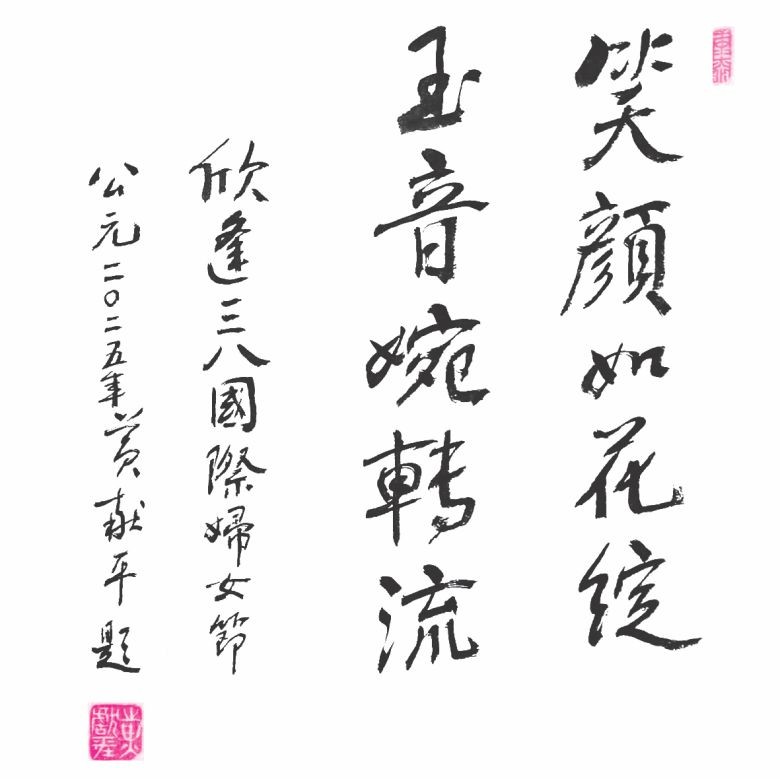 笑顔如花綻
玉音婉轉流
欣逢三八國際婦女節
公元二〇二五年黃献平題